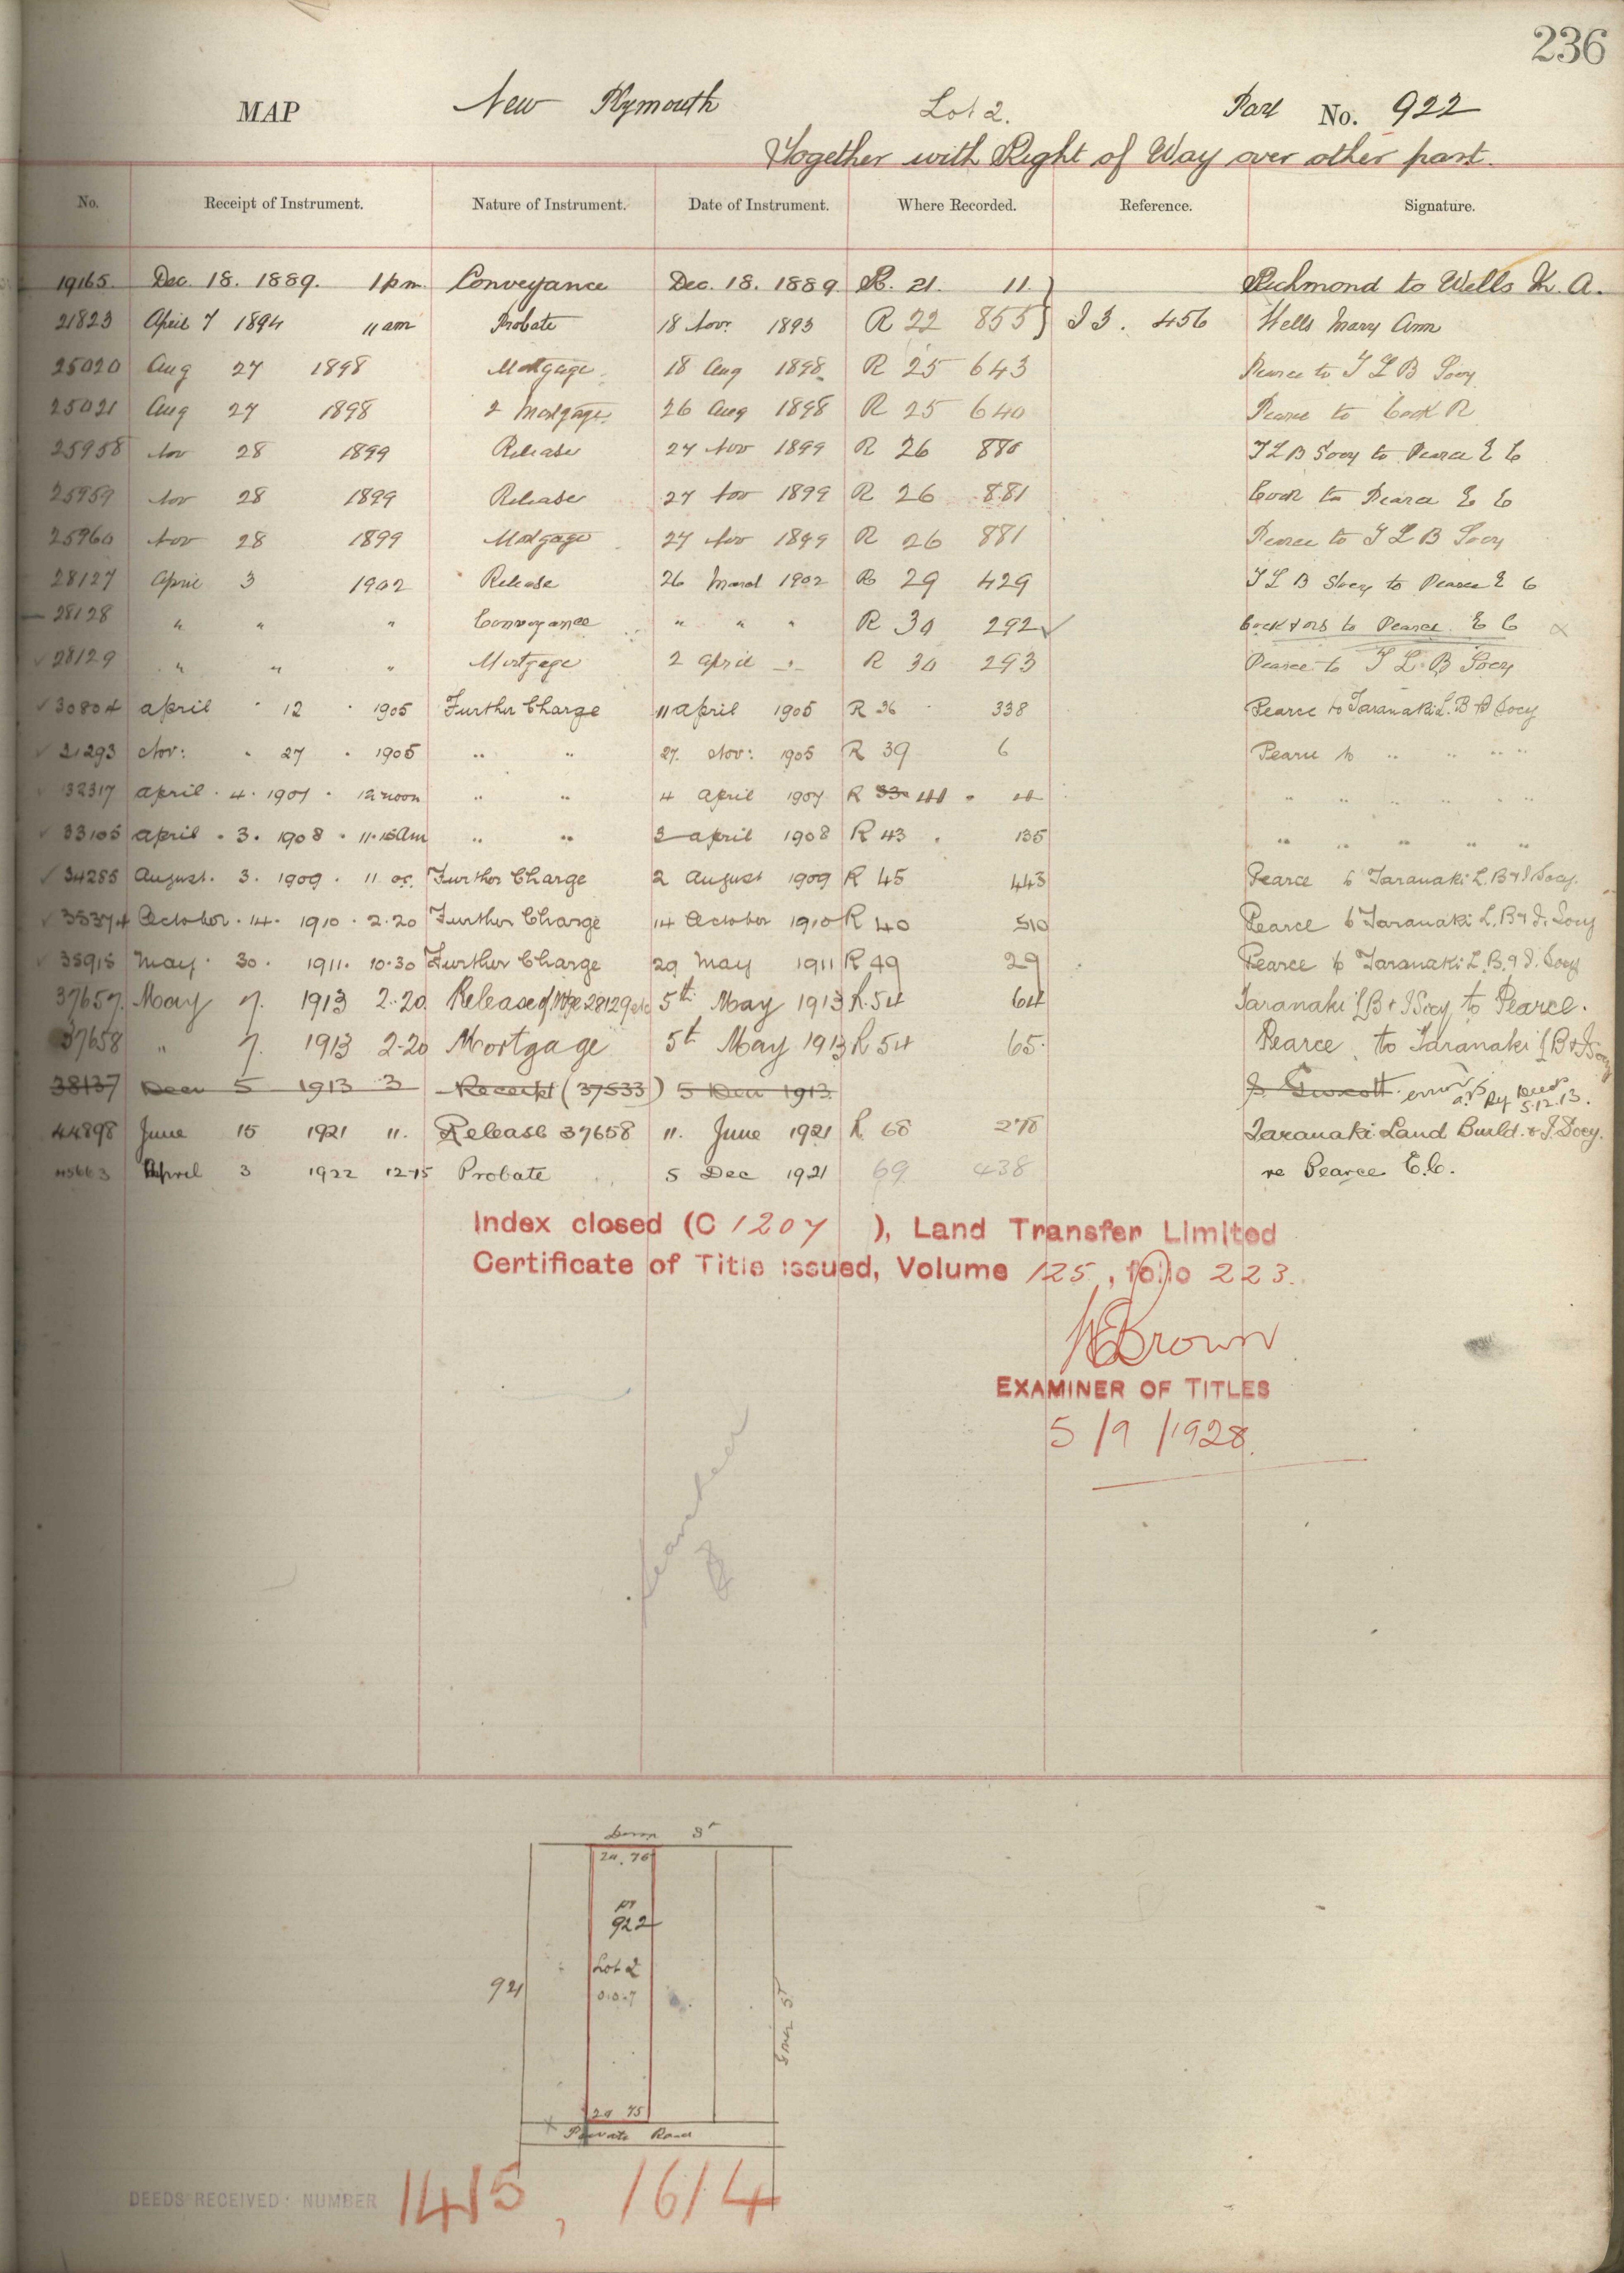 236
MAP New Plymouth Lot 2. Part No. 922
Together with Right of Way over other part.
No. Receipt of Instrument. Nature of Instrument. Date of Instrument. Where Recorded. Reference. Signature.
19165. Dec. 18. 1889. 1 pm. Conveyance Dec. 18. 1889 R. 21. 11. Richmond to Wells M. A.
21823 April 7 1894 11 am Probate 18 Nov. 1893 R 22 855 I 3. 456 Wells Mary Ann
25020 Aug 27 1898 Mortgage 18 Aug 1898 R 25 643 Pearce to T L B Socy
25021 Aug 27 1898 2 Mortgage 26 Aug 1898 R 25 640 Pearce to Cock R
25958 Nov 28 1899 Release 27 Nov 1899 R 26 880 T L B Socy to Pearce E C
25959 Nov 28 1899 Release 27 Nov 1899 R 26 881 Cock to Pearce E C
25960 Nov 28 1899 Mortgage 27 Nov 1899 R 26 881 Pearce to T L B Socy
28127 April 3 1902 Release 26 March 1902 R 29 429 T L B Socy to Pearce E C
28128 " " " Conveyance " " " R 30 292 Cock & ors to Pearce E C
28129 " " " Mortgage 2 April " R 30 293 Pearce to T L B Socy
30804 April 12 1905 Further Charge 11 April 1905 R 36 338 Pearce to Taranaki L. B & Socy
31293 Nov: 27 1905 " " 27. Nov: 1905 R 39 6 Pearce to " " " "
32317 April 4. 1907 12 noon " " 4 April 1907 R " " " " "
33105 April 3. 1908 11.15 am " " 3 April 1908 R 43 135 " " " " "
34285 August. 3. 1909. 11. Further Charge 2 August 1909 R 45 443 Pearce to Taranaki L. B & I Socy.
35374 October. 14. 1910. 2.20 Further Charge 14 October 1910 R 40 510 Pearce to Taranaki L. B & I. Socy
35915 May 30. 1911. 10.30 Further Charge 29 May 1911 R 49 29 Pearce to Taranaki L. B. & I. Socy
37657. May 7. 1913 2.20. Release of Mge 28129 etc 5th May 1913 R. 54 64 Taranaki L B & I Socy to Pearce.
37658 " 7. 1913 2.20 Mortgage 5th May 1913 R 54 65. Pearce to Taranaki L B & I Socy
38137 Decr 5 1913 3 Receipt (37533) 5 Dec 1913. error 5.12.13.
44898 June 15 1921 11. Release 37658 11. June 1921 R. 68 276 Taranaki Land Build. & I. Socy.
45663 April 3 1922 12.15 Probate 5 Dec 1921 69 438 re Pearce E. C.
Index closed (C 1207 ), Land Transfer Limited
Certificate of Title issued, Volume 125, folio 223.
Brown
EXAMINER OF TITLES
5/9/1928.
Devon St
24.76
pt
922
Lot 2
0.0.7
921
24 75
Private Road
DEEDS RECEIVED: NUMBER 1415, 1614